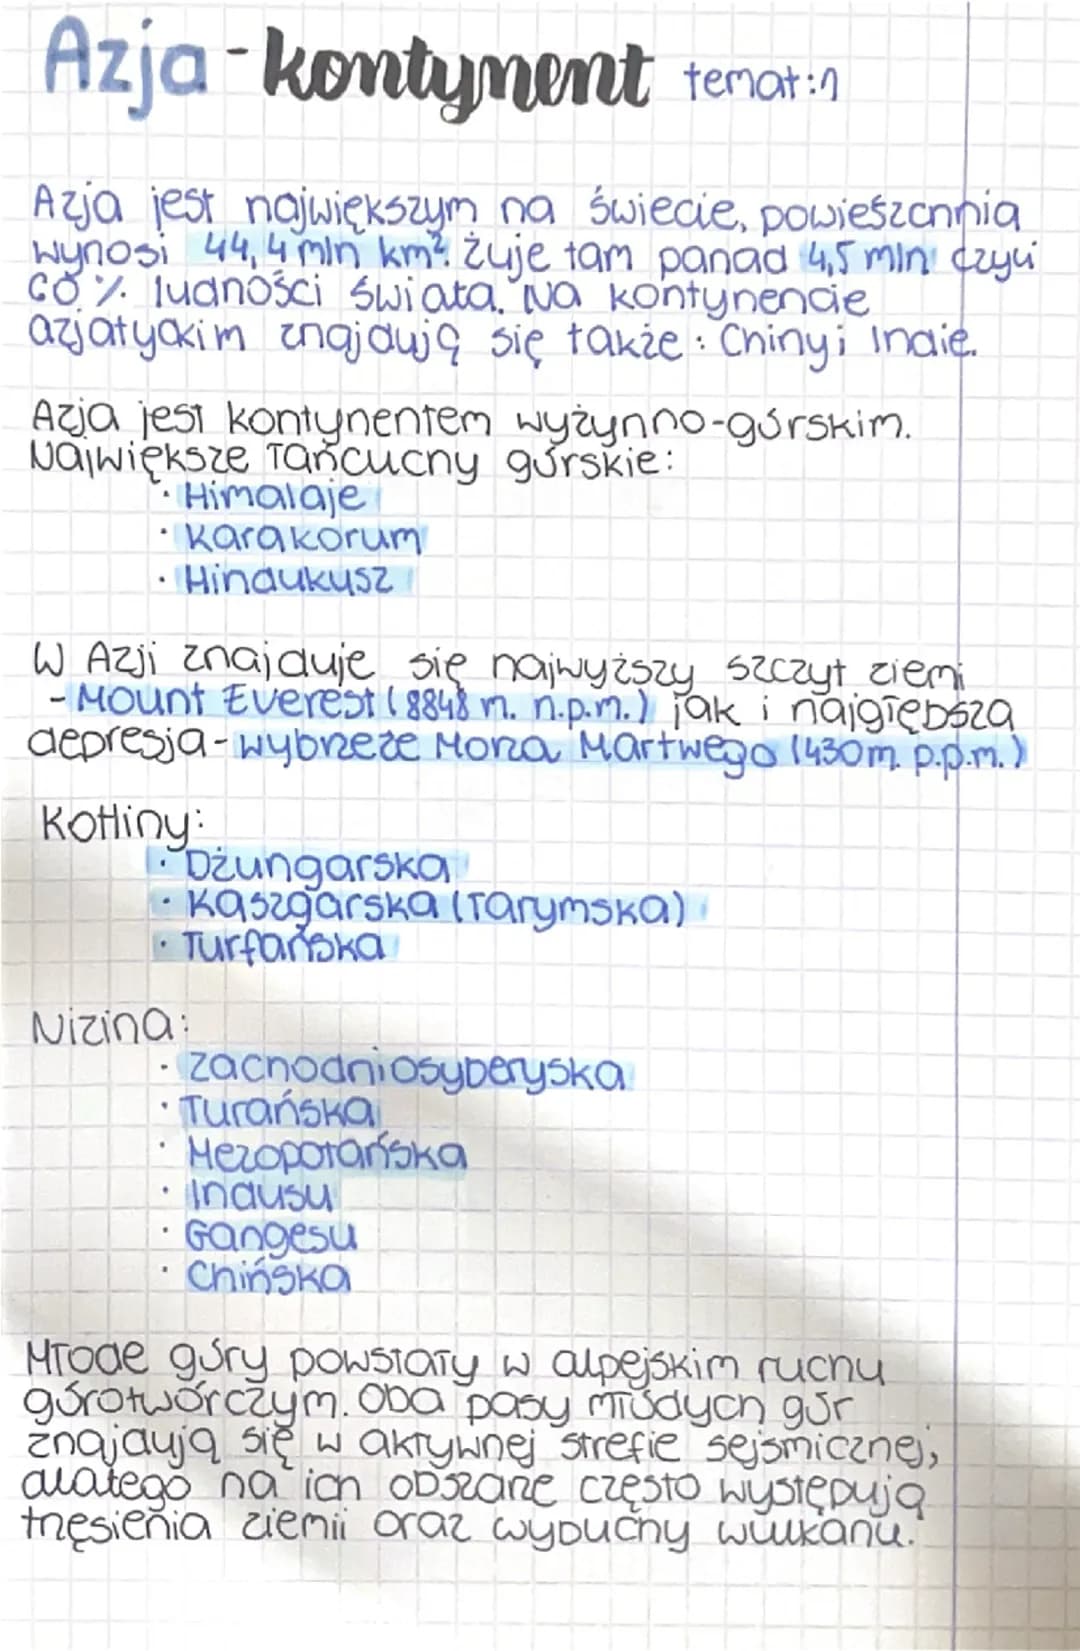 Azja - kontynent temat:1
Azja jest największym na świecie, powieszchnia
wynosi 44,4 mln km². Żyje tam panad 4,5 mln czyli
60 % ludności świata. Na kontynencie
azjatyckim znajdują się także: Chiny i Indie.
Azja jest kontynentem wyżynno-górskim.
Największe łańcuchy górskie:
· Himalaje
· Karakorum
· Hindukusz
W Azji znajduje się najwyższy szczyt ziemi
- Mount Everest (8848 m. n.p.m.) jak i najgłębsza
depresja - wybrzeże Morza Martwego (430m. p.p.m.)
Kotliny:
· Dżungarska
· Kaszgarska (Tarymska)
· Turfańska
Nizina:
· Zachodniosyberyska
· Turańska
· Mezopotańska
· Indusu
· Gangesu
· Chińska
Młode góry powstały w alpejskim ruchu
górotwórczym. Oba pasy młodych gór
znajdują się w aktywnej strefie sejsmicznej,
dlatego na ich obszarze często występują
trzęsienia ziemii oraz wybuchy wulkanu.